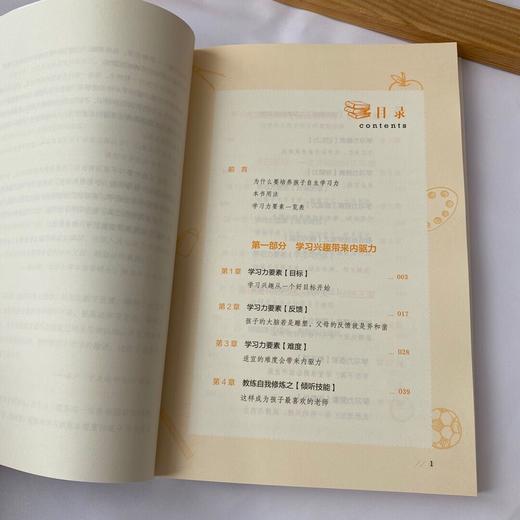 目录
contents
前 言
为什么要培养孩子自主学习力
本书用法
学习力要素一览表
第一部分 学习兴趣带来内驱力
第1章 学习力要素【目标】 ... 003
学习兴趣从一个好目标开始
第2章 学习力要素【反馈】 ... 017
孩子的大脑若是雕塑，父母的反馈就是斧和凿
第3章 学习力要素【难度】 ... 028
适宜的难度会带来内驱力
第4章 教练自我修炼之【倾听技能】 ... 039
这样成为孩子最喜欢的老师
1